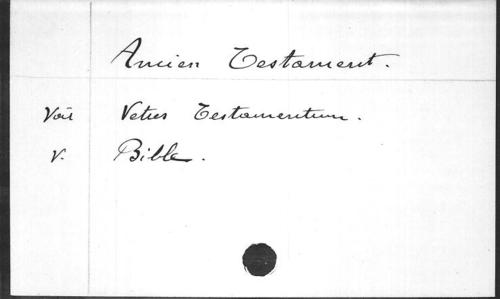 Ancien Testament.
Voir Vetus Testamentum.
V. Bible.